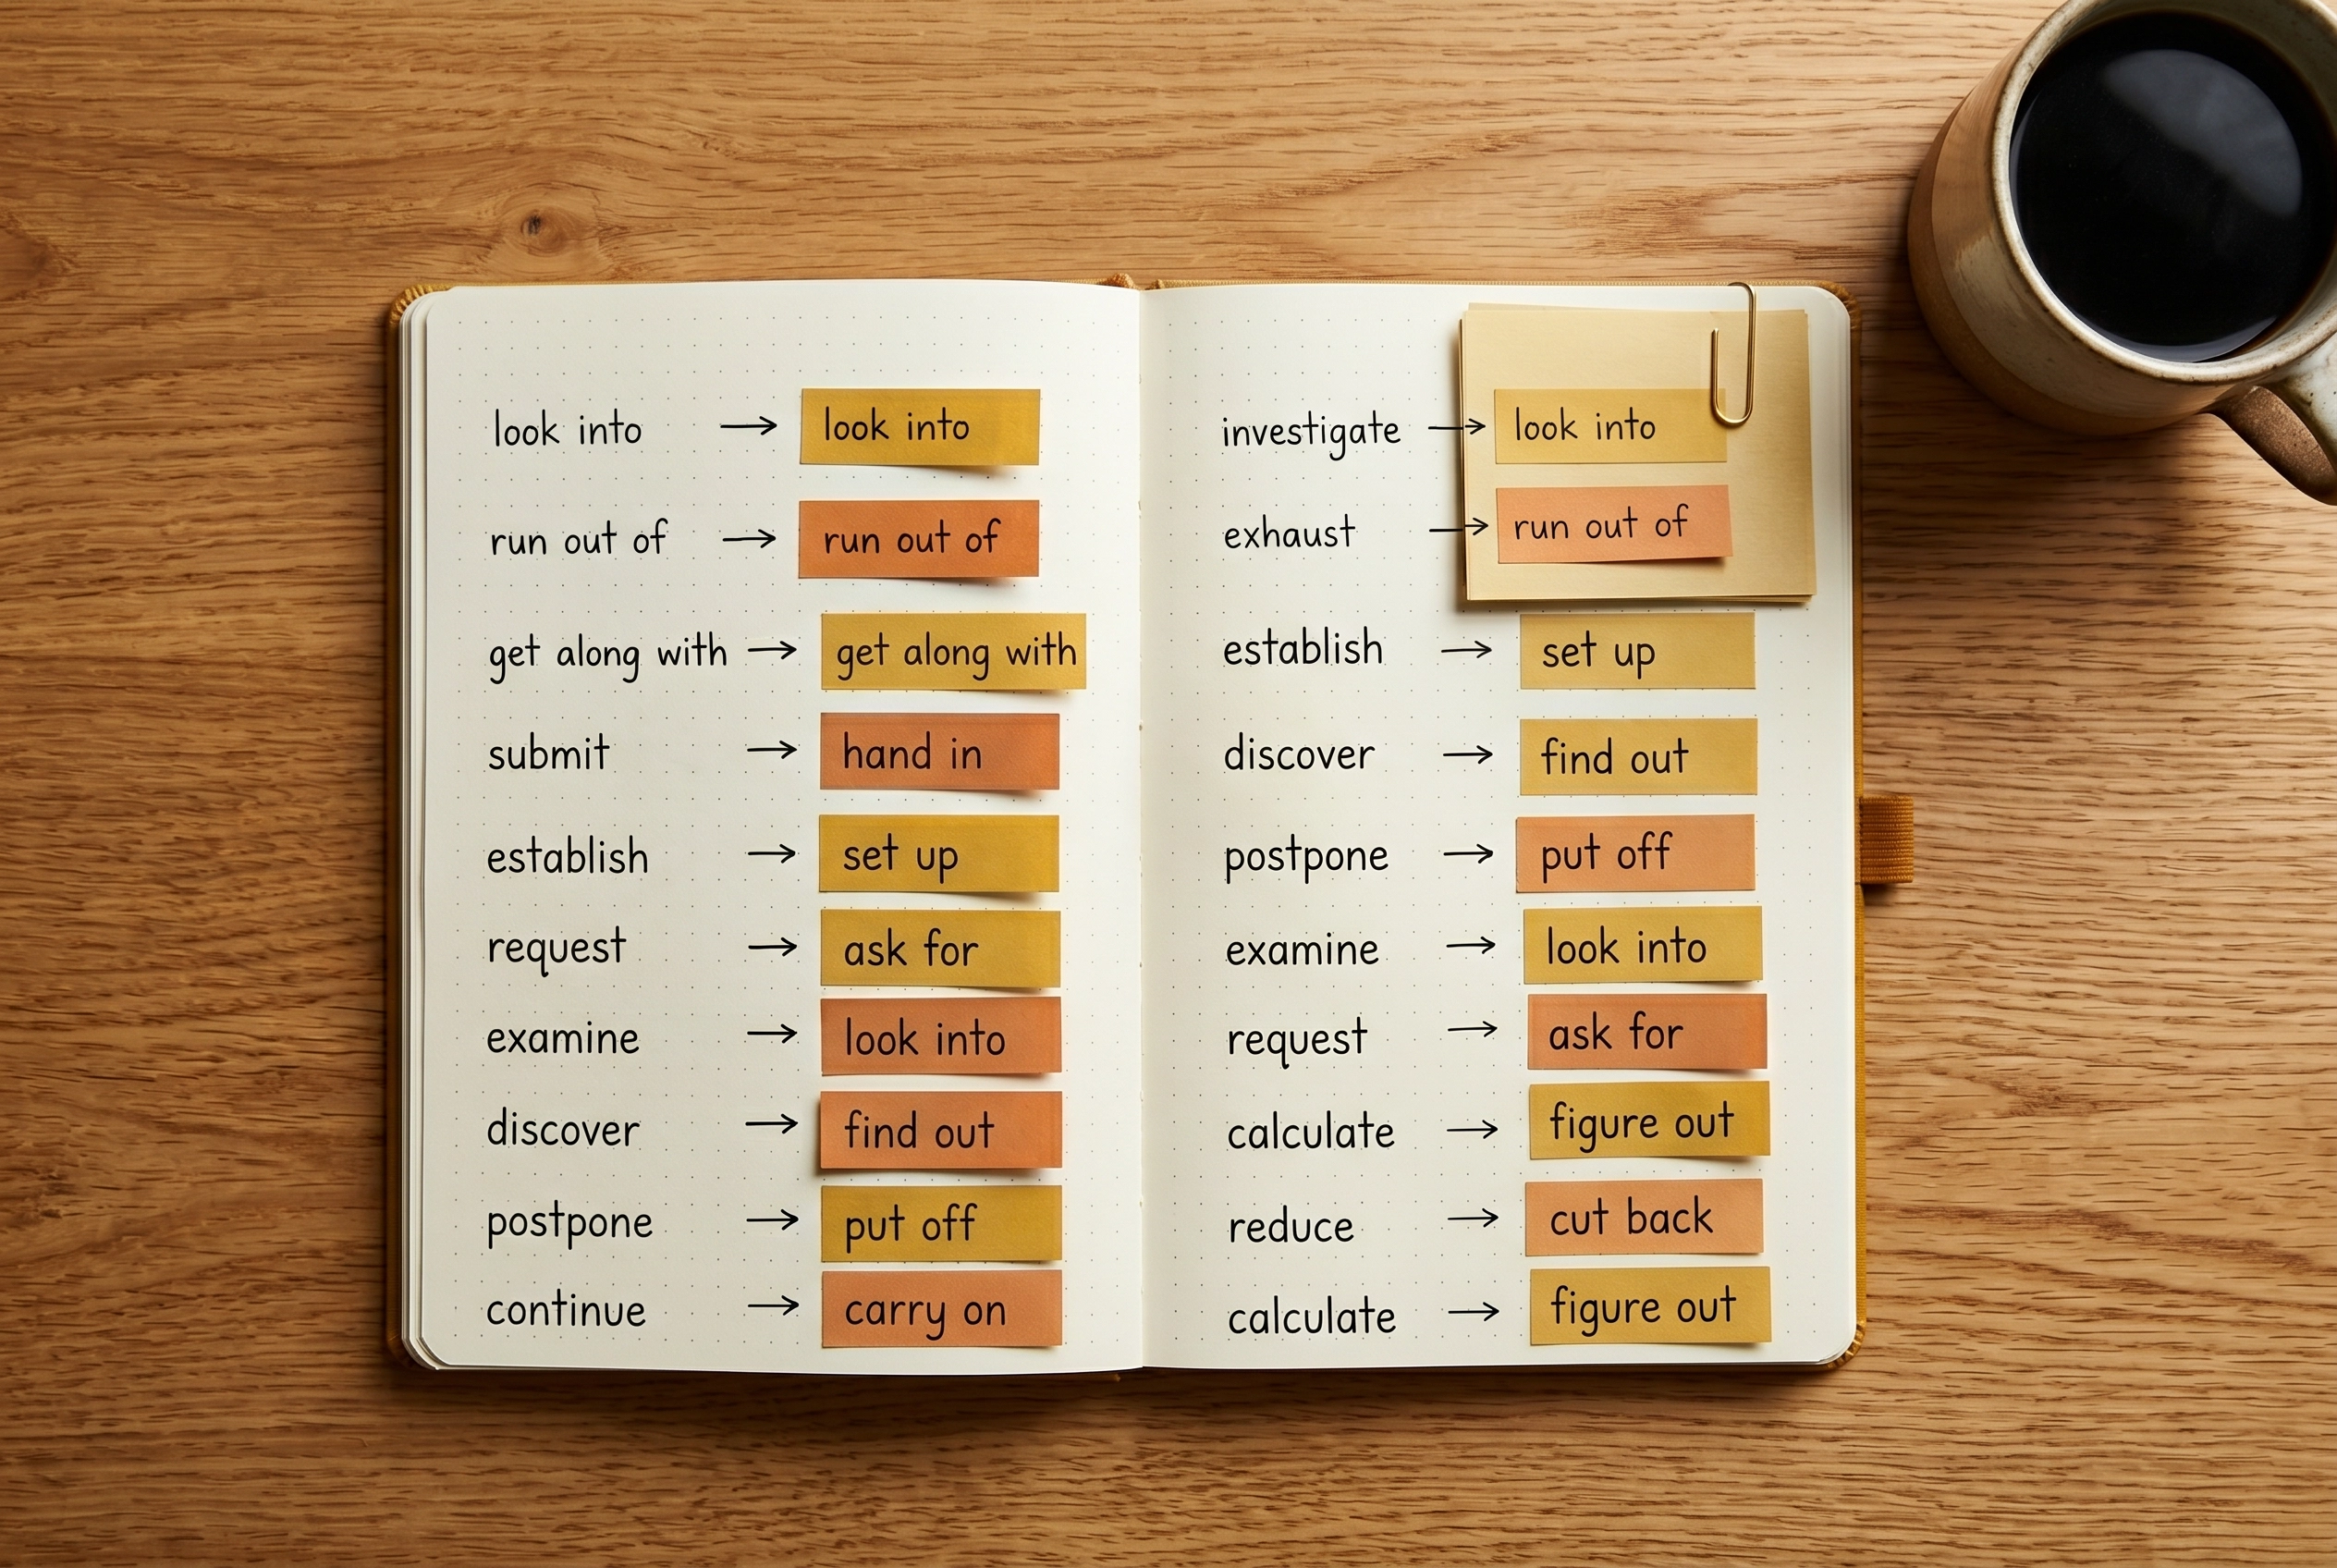 look into → look into
run out of → run out of
get along with → get along with
submit → hand in
establish → set up
request → ask for
examine → look into
discover → find out
postpone → put off
continue → carry on
investigate → look into
exhaust → run out of
establish → set up
discover → find out
postpone → put off
examine → look into
request → ask for
calculate → figure out
reduce → cut back
calculate → figure out